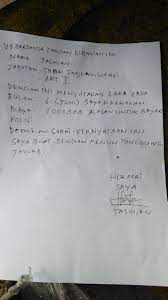 Yg BERTANDA TANGAN DIBAWAH INI
NAMA TASMIAN
JABATAN TANJUNG WANGI
ART I
DENGAN INI MENYATAKAN BAHWA PADA
BULAN 6 (JUNI) SAYA DIKENAKAN
BIAYA 1000000 ALASAN UNTUK BAYAR
POLISI
DEMIKIAN SURAT PERNYATAAN INI
SAYA BUAT DENGAN PENUH TANGGUNG
JAWAB
HORMAT
SAYA
TASMIAN